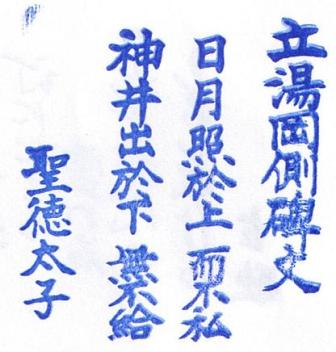 立湯岡側碑文
日月照於上 而不私
神井出於下 無不給
聖徳太子